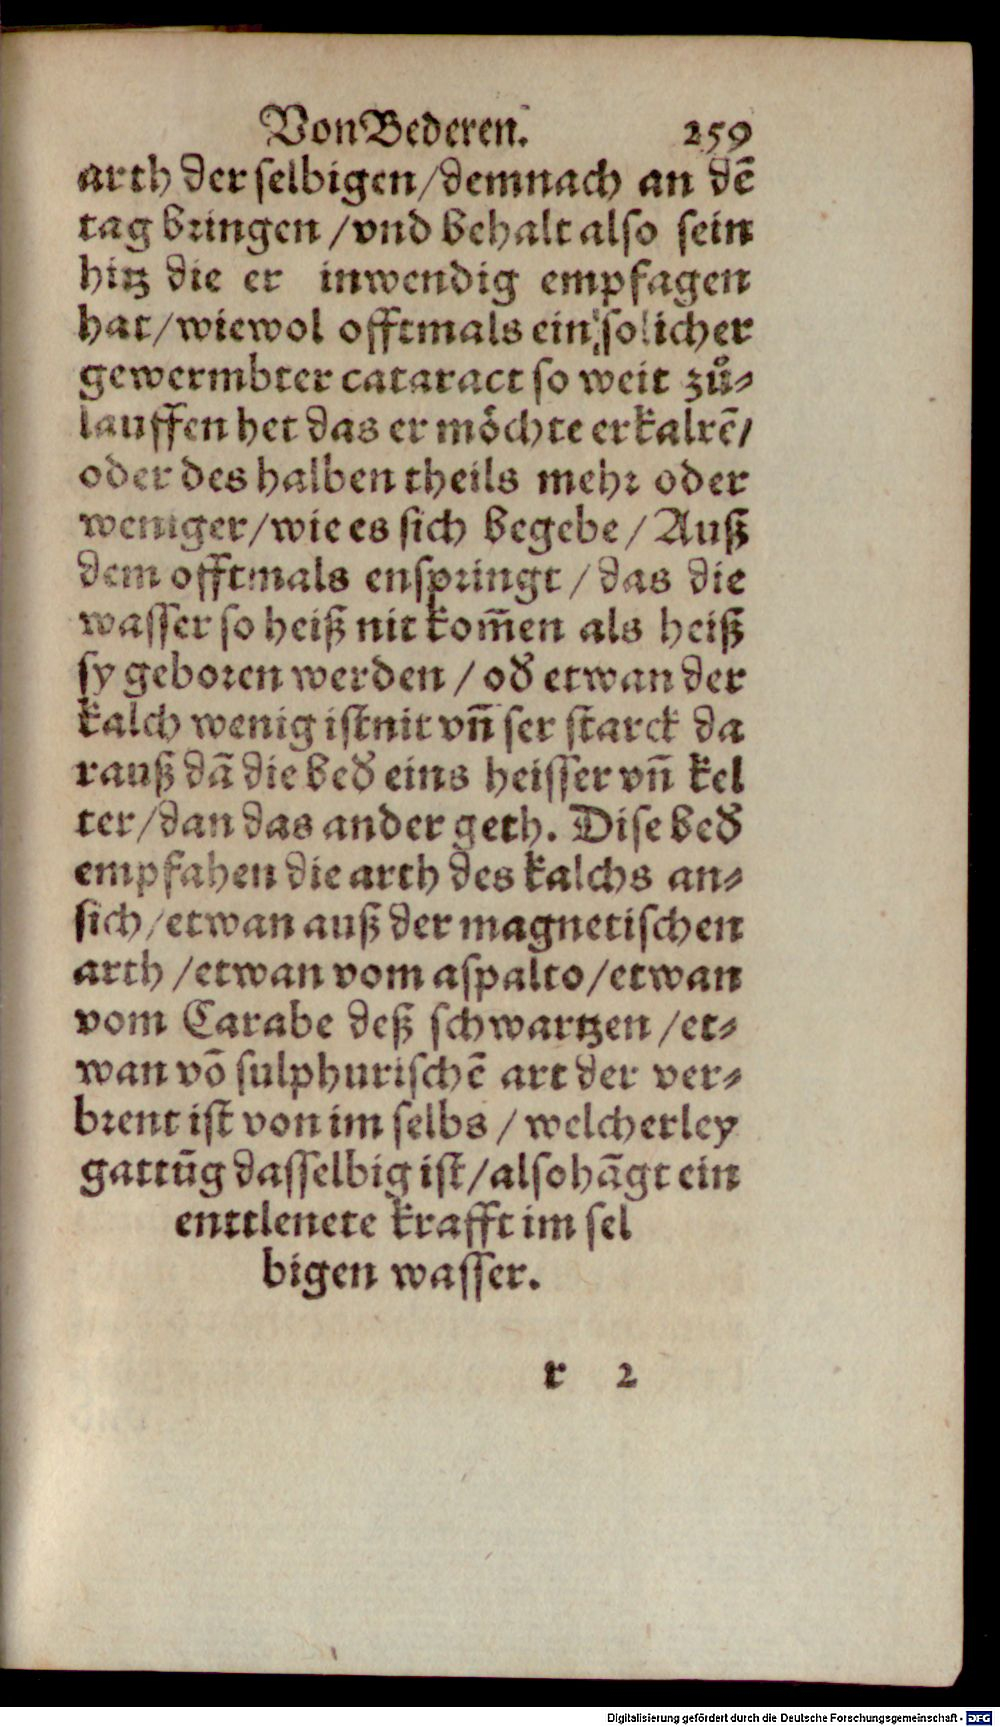 Von Bederen. 259
arth der selbigen/demnach an dē
tag bringen /vnd behalt also sein
hitz die er inwendig empfagen
hat/wiewol offtmals ein solicher
gewermbter cataract so weit zů-
lauffen het das er möchte erkaltē/
oder des halben theils mehr oder
weniger/wie es sich begebe/Auß
dem offtmals enspringt/das die
wasser so heiß nit kom̄en als heiß
sy geboren werden/od̕ etwan der
kalch wenig ist nit vn̄ ser starck da
rauß dā die bed̕ eins heisser vn̄ kel
ter/dan das ander geth. Dise bed̕
empfahen die arth des kalchs an-
sich/etwan auß der magnetischen
arth/etwan vom aspalto/etwan
vom Carabe deß schwartzen/et-
wan vō sulphurischē art der ver-
brent ist von im selbs/welcherley
gattūg dasselbig ist/also hāgt ein
enttlenete krafft im sel
bigen wasser.
r 2
Digitalisierung gefördert durch die Deutsche Forschungsgemeinschaft - DFG